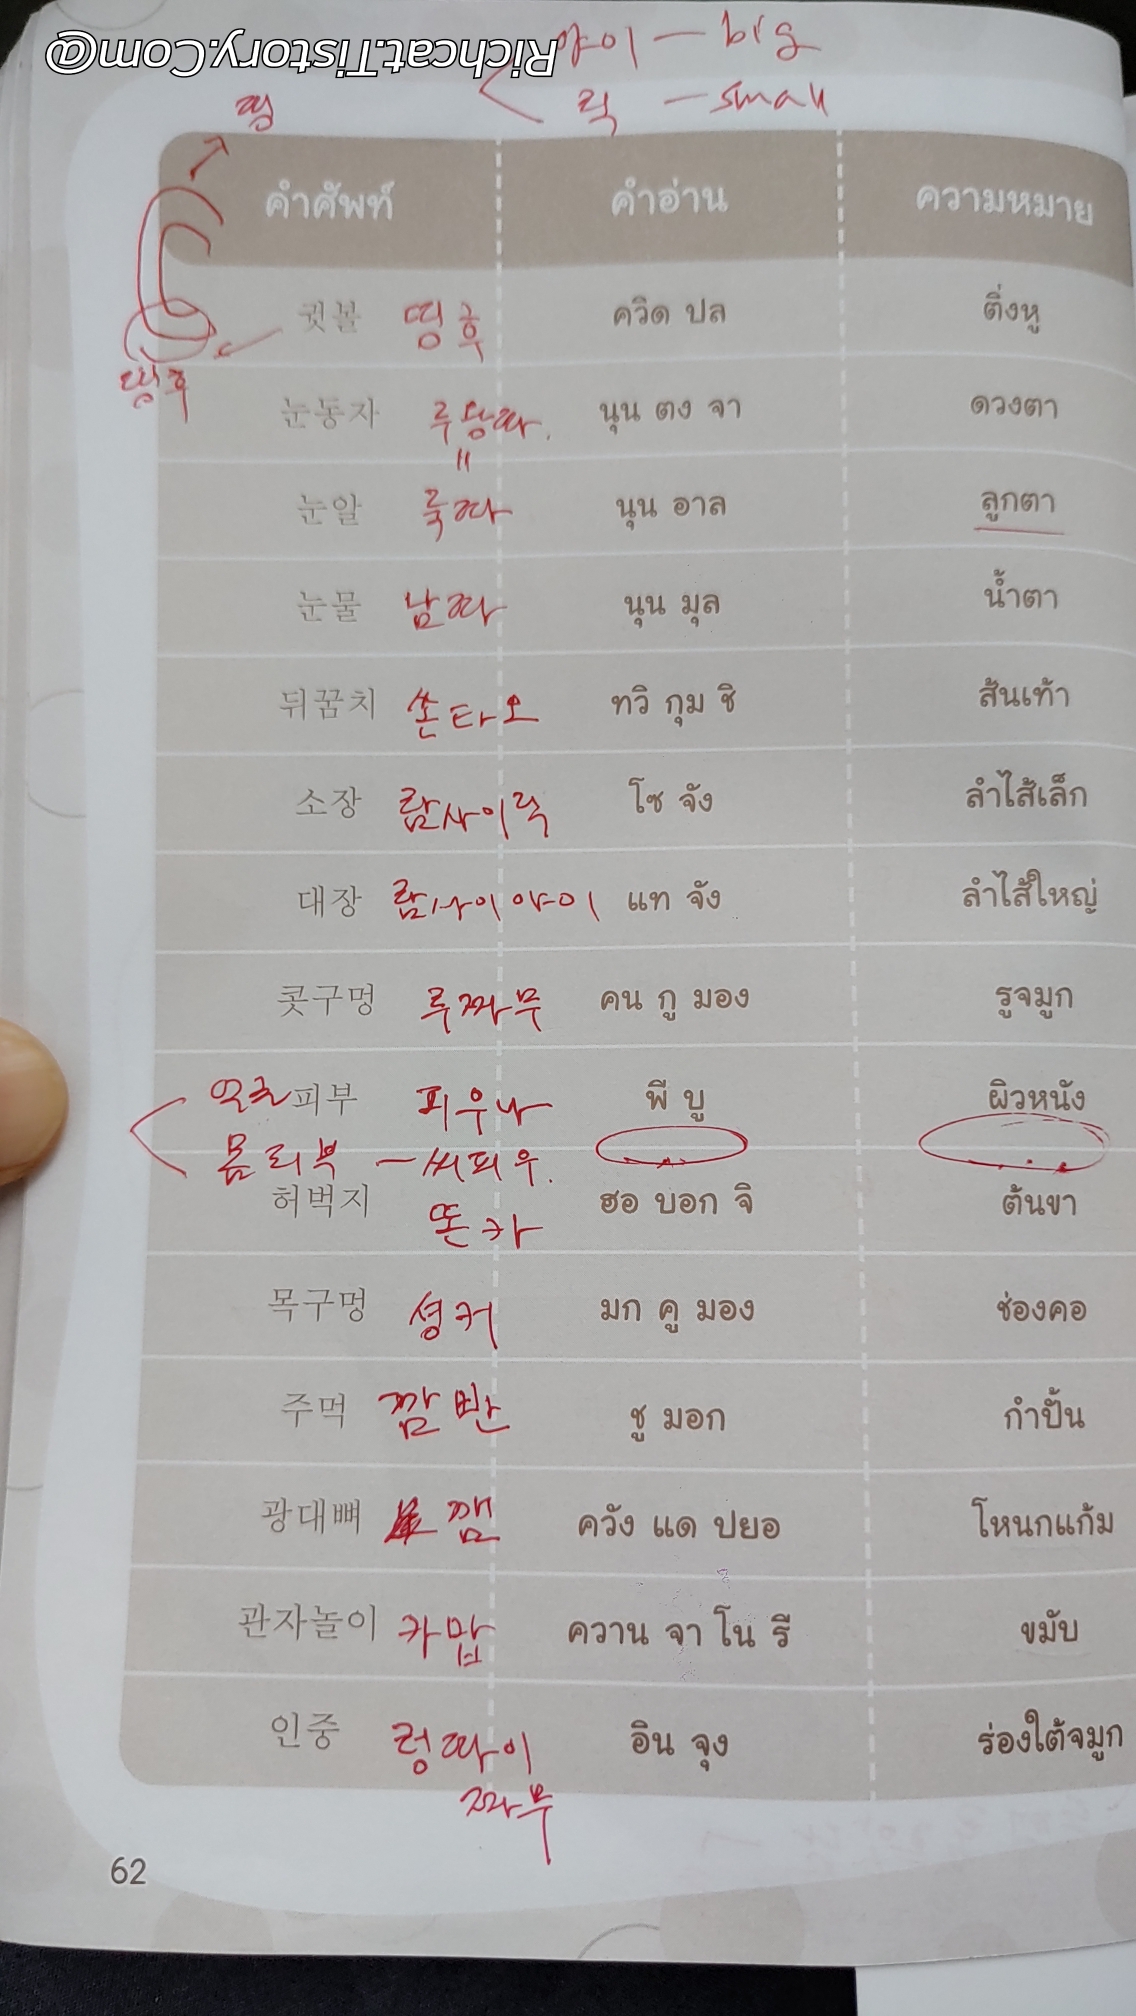 Richcat.Tistory.Com@
야이 — big
릭 — small
คำศัพท์ คำอ่าน ความหมาย
귓볼 띵후 ควิด ปล ติ่งหู
띵후
눈동자 루왕따. นุน ตง จา ดวงตา
눈알 룩따 นุน อาล ลูกตา
눈물 남따 นุน มุล น้ำตา
뒤꿈치 쏜타오 ทวิ กุม ชิ ส้นเท้า
소장 람사이릭 โซ จัง ลำไส้เล็ก
대장 람사이야이 แท จัง ลำไส้ใหญ่
콧구멍 루짜무 คน กู มอง รูจมูก
얼굴 피부 피우나 พี บู ผิวหนัง
몸 피부 — 씨피우.
허벅지 똔카 ฮอ บอก จิ ต้นขา
목구멍 숑커 มก คู มอง ช่องคอ
주먹 깜반 ชู มอก กำปั้น
광대뼈 깸 ควัง แด ปยอ โหนกแก้ม
관자놀이 카맙 ควาน จา โน รี ขมับ
인중 렁따이 อิน จุง ร่องใต้จมูก
짜무
62